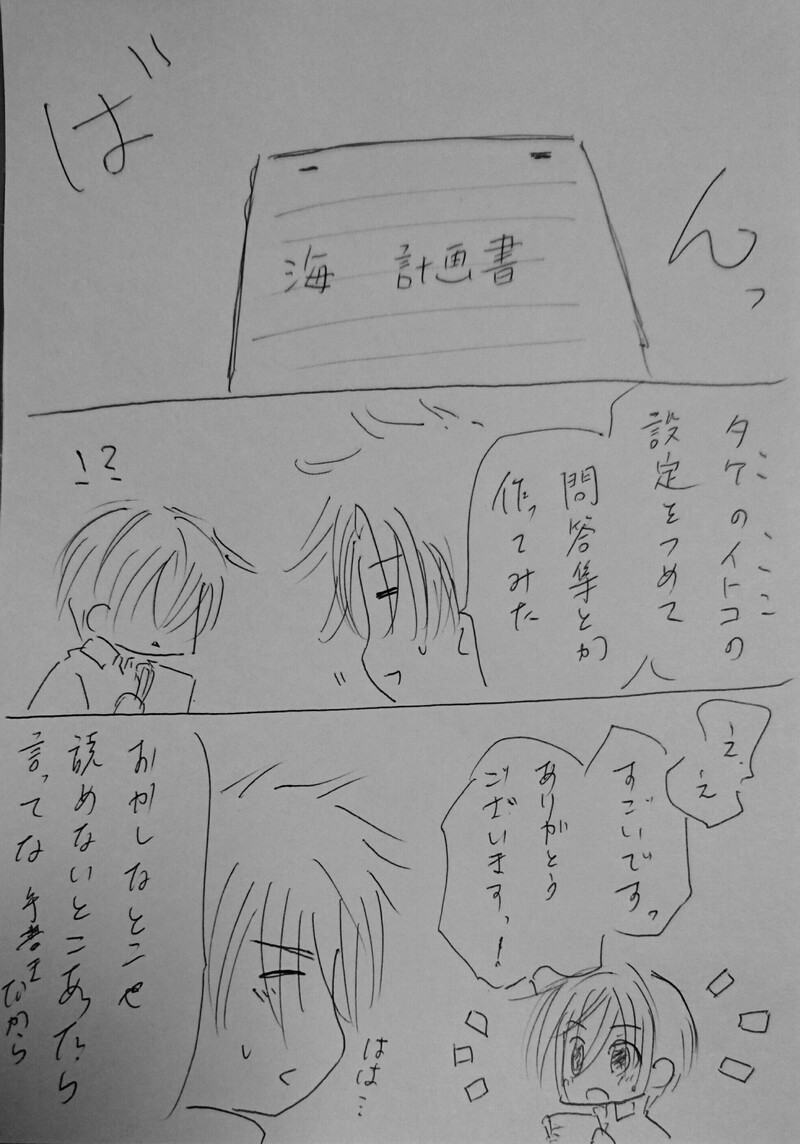 ばんっ
海 計画書
タケのイトコの
設定をつめて
問答集とか
作ってみた
!?
え、
え
すごいですっ
ありがとう
ございますっ!
はは…
おかしなとこや
読めないとこあったら
言ってな
手書きだから